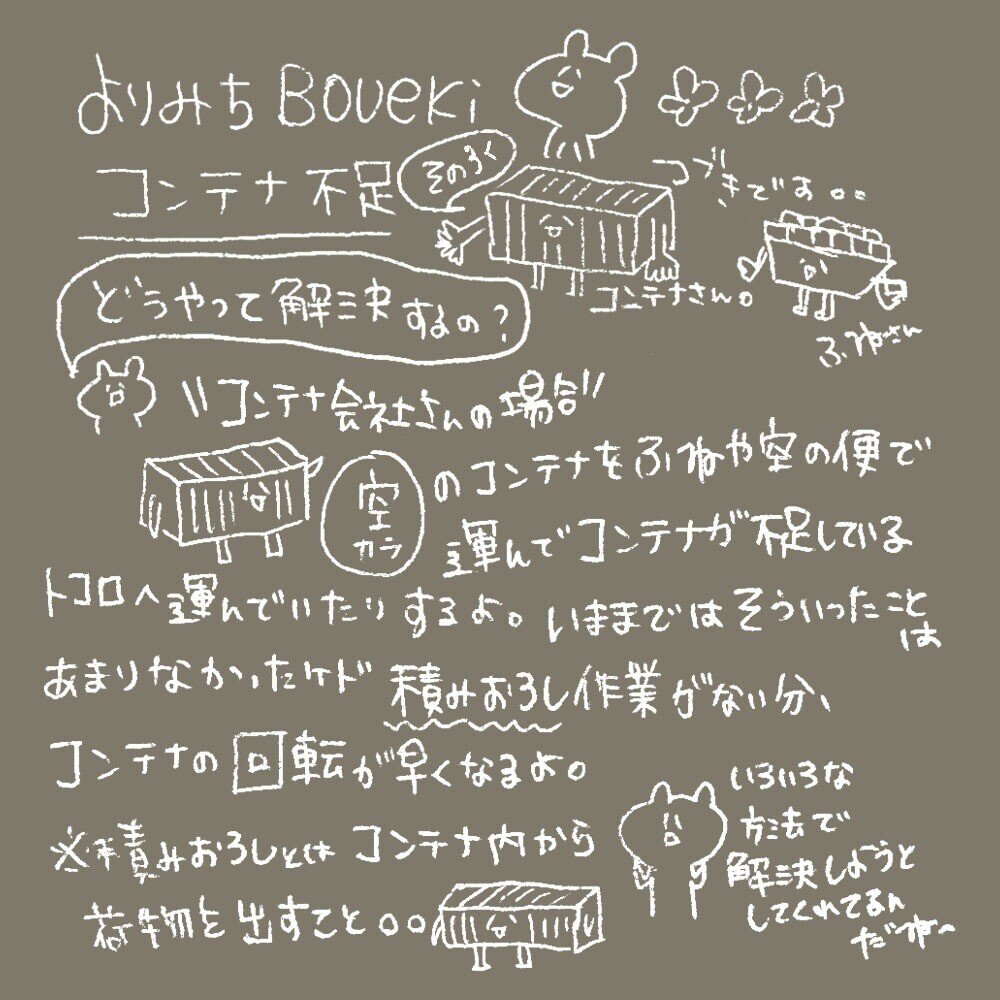 よりみちBoueki
コンテナ不足
その3く
つづきです。。
コンテナさん。
ふねさん
どうやって解決するの?
"コンテナ会社さんの場合"
空
カラ
のコンテナをふねや空の便で
運んでコンテナが不足している
トコロへ運んでいたりするよ。いままではそういったことは
あまりなかったケド積みおろし作業がない分、
コンテナの回転が早くなるよ。
※積みおろしとはコンテナ内から
荷物を出すこと。。
いろいろな
方法で
解決しようと
してくれてるん
だねへ